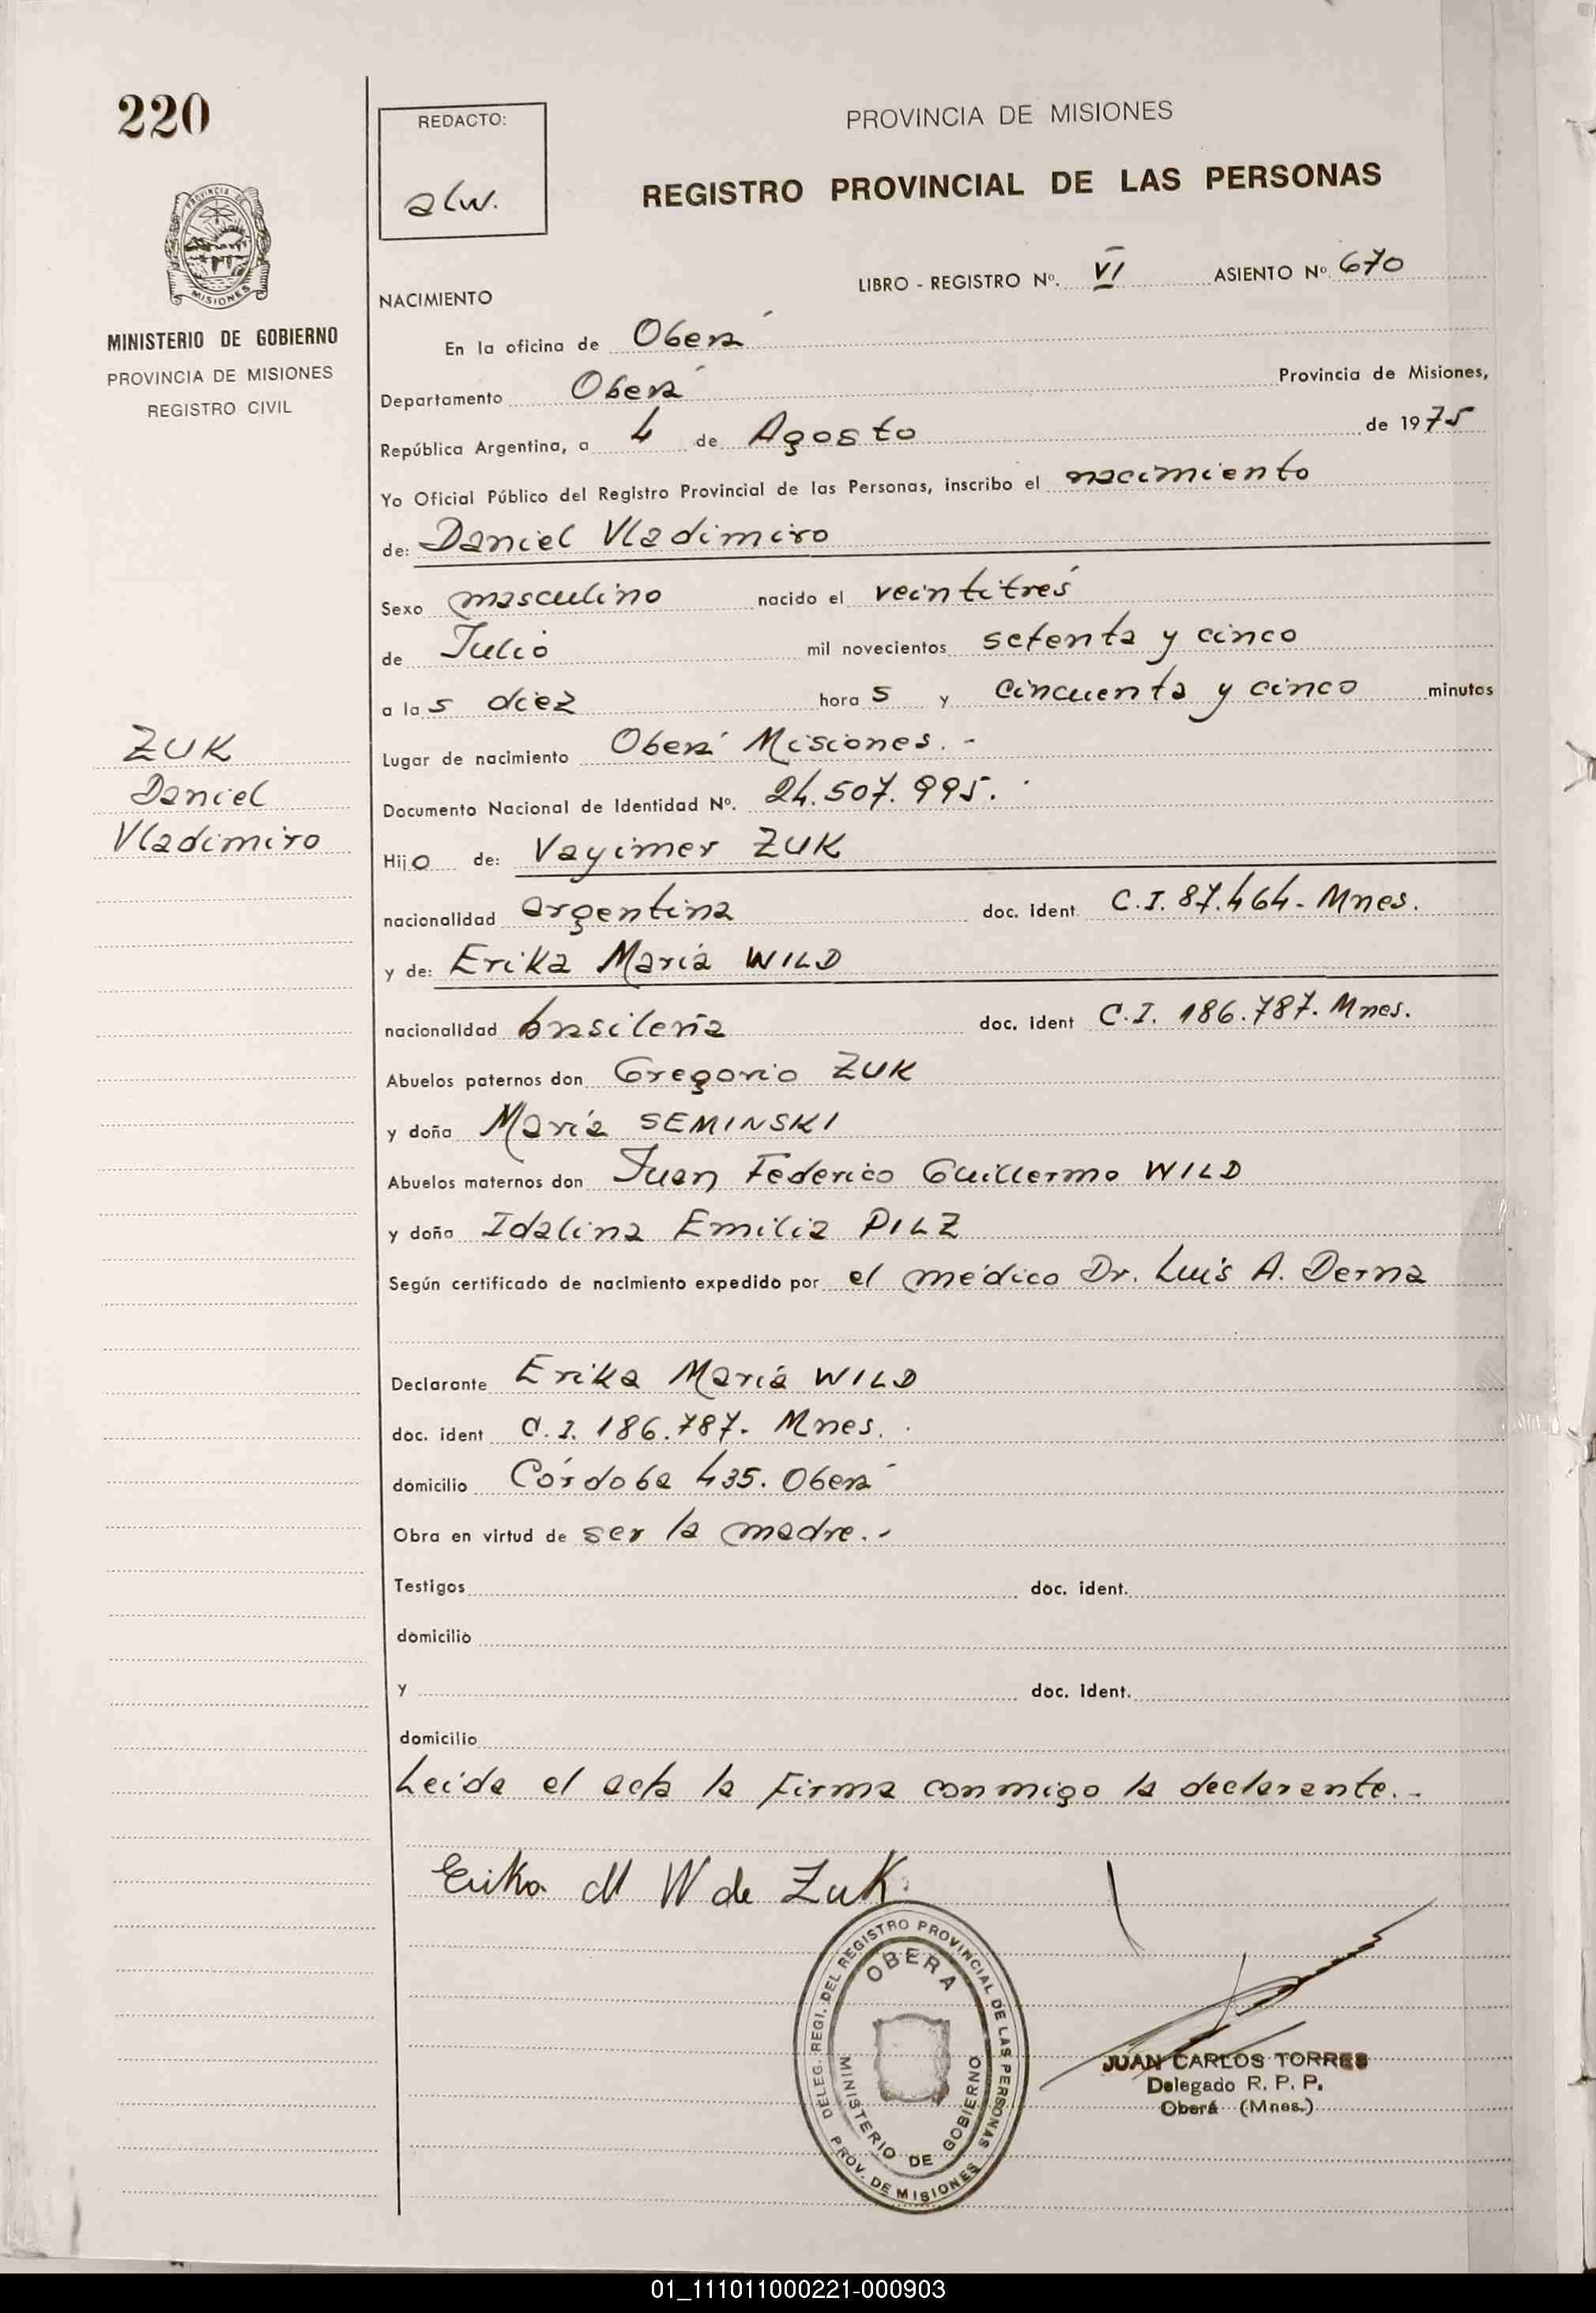 220
REDACTO:
alw.
PROVINCIA DE MISIONES
REGISTRO PROVINCIAL DE LAS PERSONAS
PROVINCIA DE
MISIONES
MINISTERIO DE GOBIERNO
PROVINCIA DE MISIONES
REGISTRO CIVIL
LIBRO - REGISTRO Nº. VI ASIENTO Nº 670
NACIMIENTO
En la oficina de Oberá
Departamento Oberá Provincia de Misiones,
República Argentina, a 4 de Agosto de 1975
Yo Oficial Público del Registro Provincial de las Personas, inscribo el nacimiento
de: Daniel Vladimiro
Sexo masculino nacido el veintitrés
de Julio mil novecientos setenta y cinco
a las diez horas y cincuenta y cinco minutos
Lugar de nacimiento Oberá Misiones.-
Documento Nacional de Identidad Nº. 24.507.995.
Hijo de: Vayimer ZUK
nacionalidad argentina doc. ident. C.I. 87.464- Mnes.
y de: Erika María WILD
nacionalidad brasileña doc. ident C.I. 186.787. Mnes.
Abuelos paternos don Gregorio ZUK
y doña María SEMINSKI
Abuelos maternos don Juan Federico Guillermo WILD
y doña Idalina Emilia PILZ
Según certificado de nacimiento expedido por el médico Dr. Luis A. Derna
Declarante Erika María WILD
doc. ident C.I. 186.787- Mnes.
domicilio Córdoba 435. Oberá
Obra en virtud de ser la madre.-
Testigos doc. ident.
domicilio
y doc. ident.
domicilio
Leida el acta la firma conmigo la declarante.-
ZUK
Daniel
Vladimiro
Erika M W de Zuk.
DELEG. REGI. DEL REGISTRO PROVINCIAL DE LAS PERSONAS
OBERA
MINISTERIO DE GOBIERNO
PROV. DE MISIONES
JUAN CARLOS TORRES
Delegado R. P. P.
Oberá (Mnes.)
01_111011000221-000903